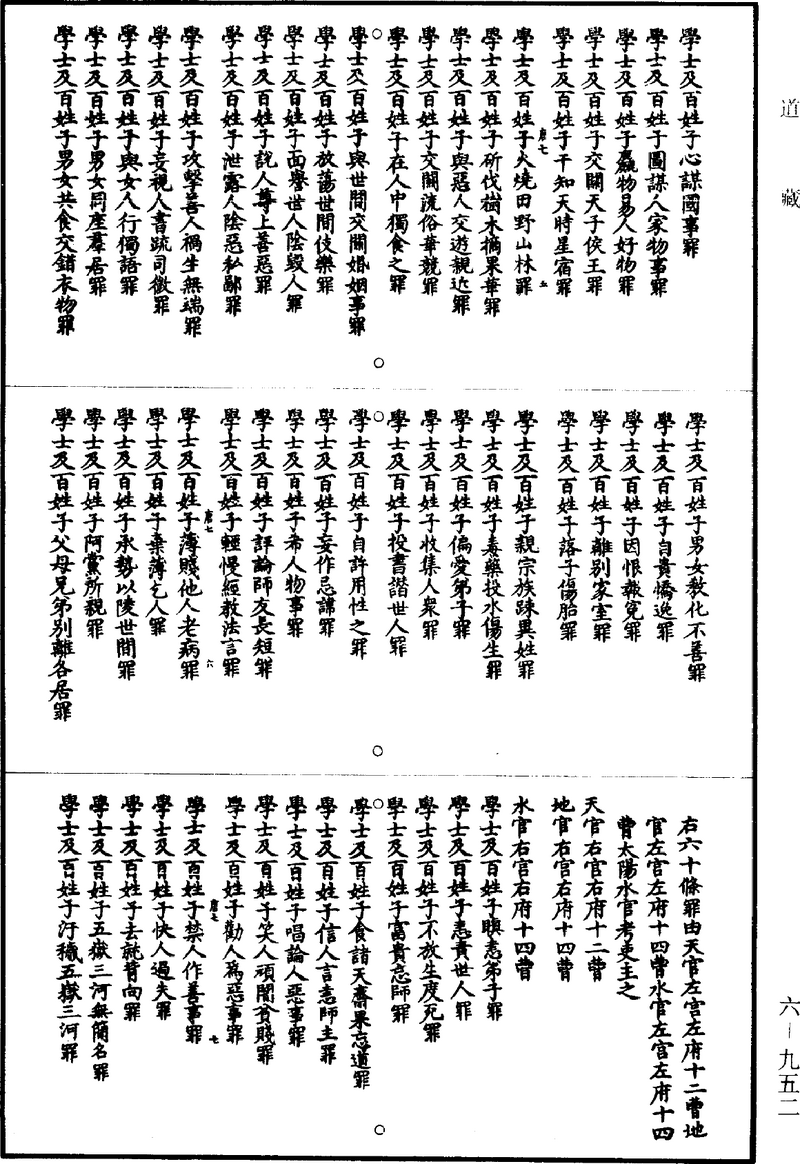 道藏
學士及百姓子心謀國事罪
學士及百姓子圖謀人家物事罪
學士及百姓子麤物易人好物罪
學士及百姓子交關天子侯王罪
學士及百姓子干知天時星宿罪
學士及百姓子火燒田野山林罪
學士及百姓子斫伐樹木摘果華罪
學士及百姓子與惡人交遊親近罪
學士及百姓子交關流俗華競罪
學士及百姓子在人中獨食之罪
學士及百姓子與世間交關婚姻事罪
學士及百姓子放蕩世間伎樂罪
學士及百姓子面譽世人陰毀人罪
學士及百姓子說人尊上善惡罪
學士及百姓子泄露人陰惡私鄙罪
學士及百姓子攻擊善人禍生無端罪
學士及百姓子妄視人書疏司徵罪
學士及百姓子與女人行獨語罪
學士及百姓子男女同座羣居罪
學士及百姓子男女共食交錯衣物罪
學士及百姓子男女教化不善罪
學士及百姓子自貴憍逸罪
學士及百姓子因恨報冤罪
學士及百姓子離別家室罪
學士及百姓子落子傷胎罪
學士及百姓子親宗族疎異姓罪
學士及百姓子毒藥投水傷生罪
學士及百姓子偏愛弟子罪
學士及百姓子收集人衆罪
學士及百姓子投書譖世人罪
學士及百姓子自許用性之罪
學士及百姓子妄作忌諱罪
學士及百姓子希人物事罪
學士及百姓子評論師友長短罪
學士及百姓子輕慢經教法言罪
學士及百姓子薄賤他人老病罪
學士及百姓子棄薄乞人罪
學士及百姓子承勢以陵世間罪
學士及百姓子阿黨所親罪
學士及百姓子父母兄弟別離各居罪
右六十條罪由天官左宮左府十二曹地
官左宮左府十四曹水官左宮左府十四
曹太陽水官考吏主之
天官右宮右府十二曹
地官右宮右府十四曹
水官右宮右府十四曹
學士及百姓子瞋恚弟子罪
學士及百姓子恚責世人罪
學士及百姓子不放生度死罪
學士及百姓子富貴忘師罪
學士及百姓子食諸天齋果忘道罪
學士及百姓子信人言恚師主罪
學士及百姓子唱論人惡事罪
學士及百姓子笑人頑闇貧賤罪
學士及百姓子勸人為惡事罪
學士及百姓子禁人作善事罪
學士及百姓子快人過失罪
學士及百姓子去就背向罪
學士及百姓子五嶽三河無簡名罪
學士及百姓子汙穢五嶽三河罪
六－九五二